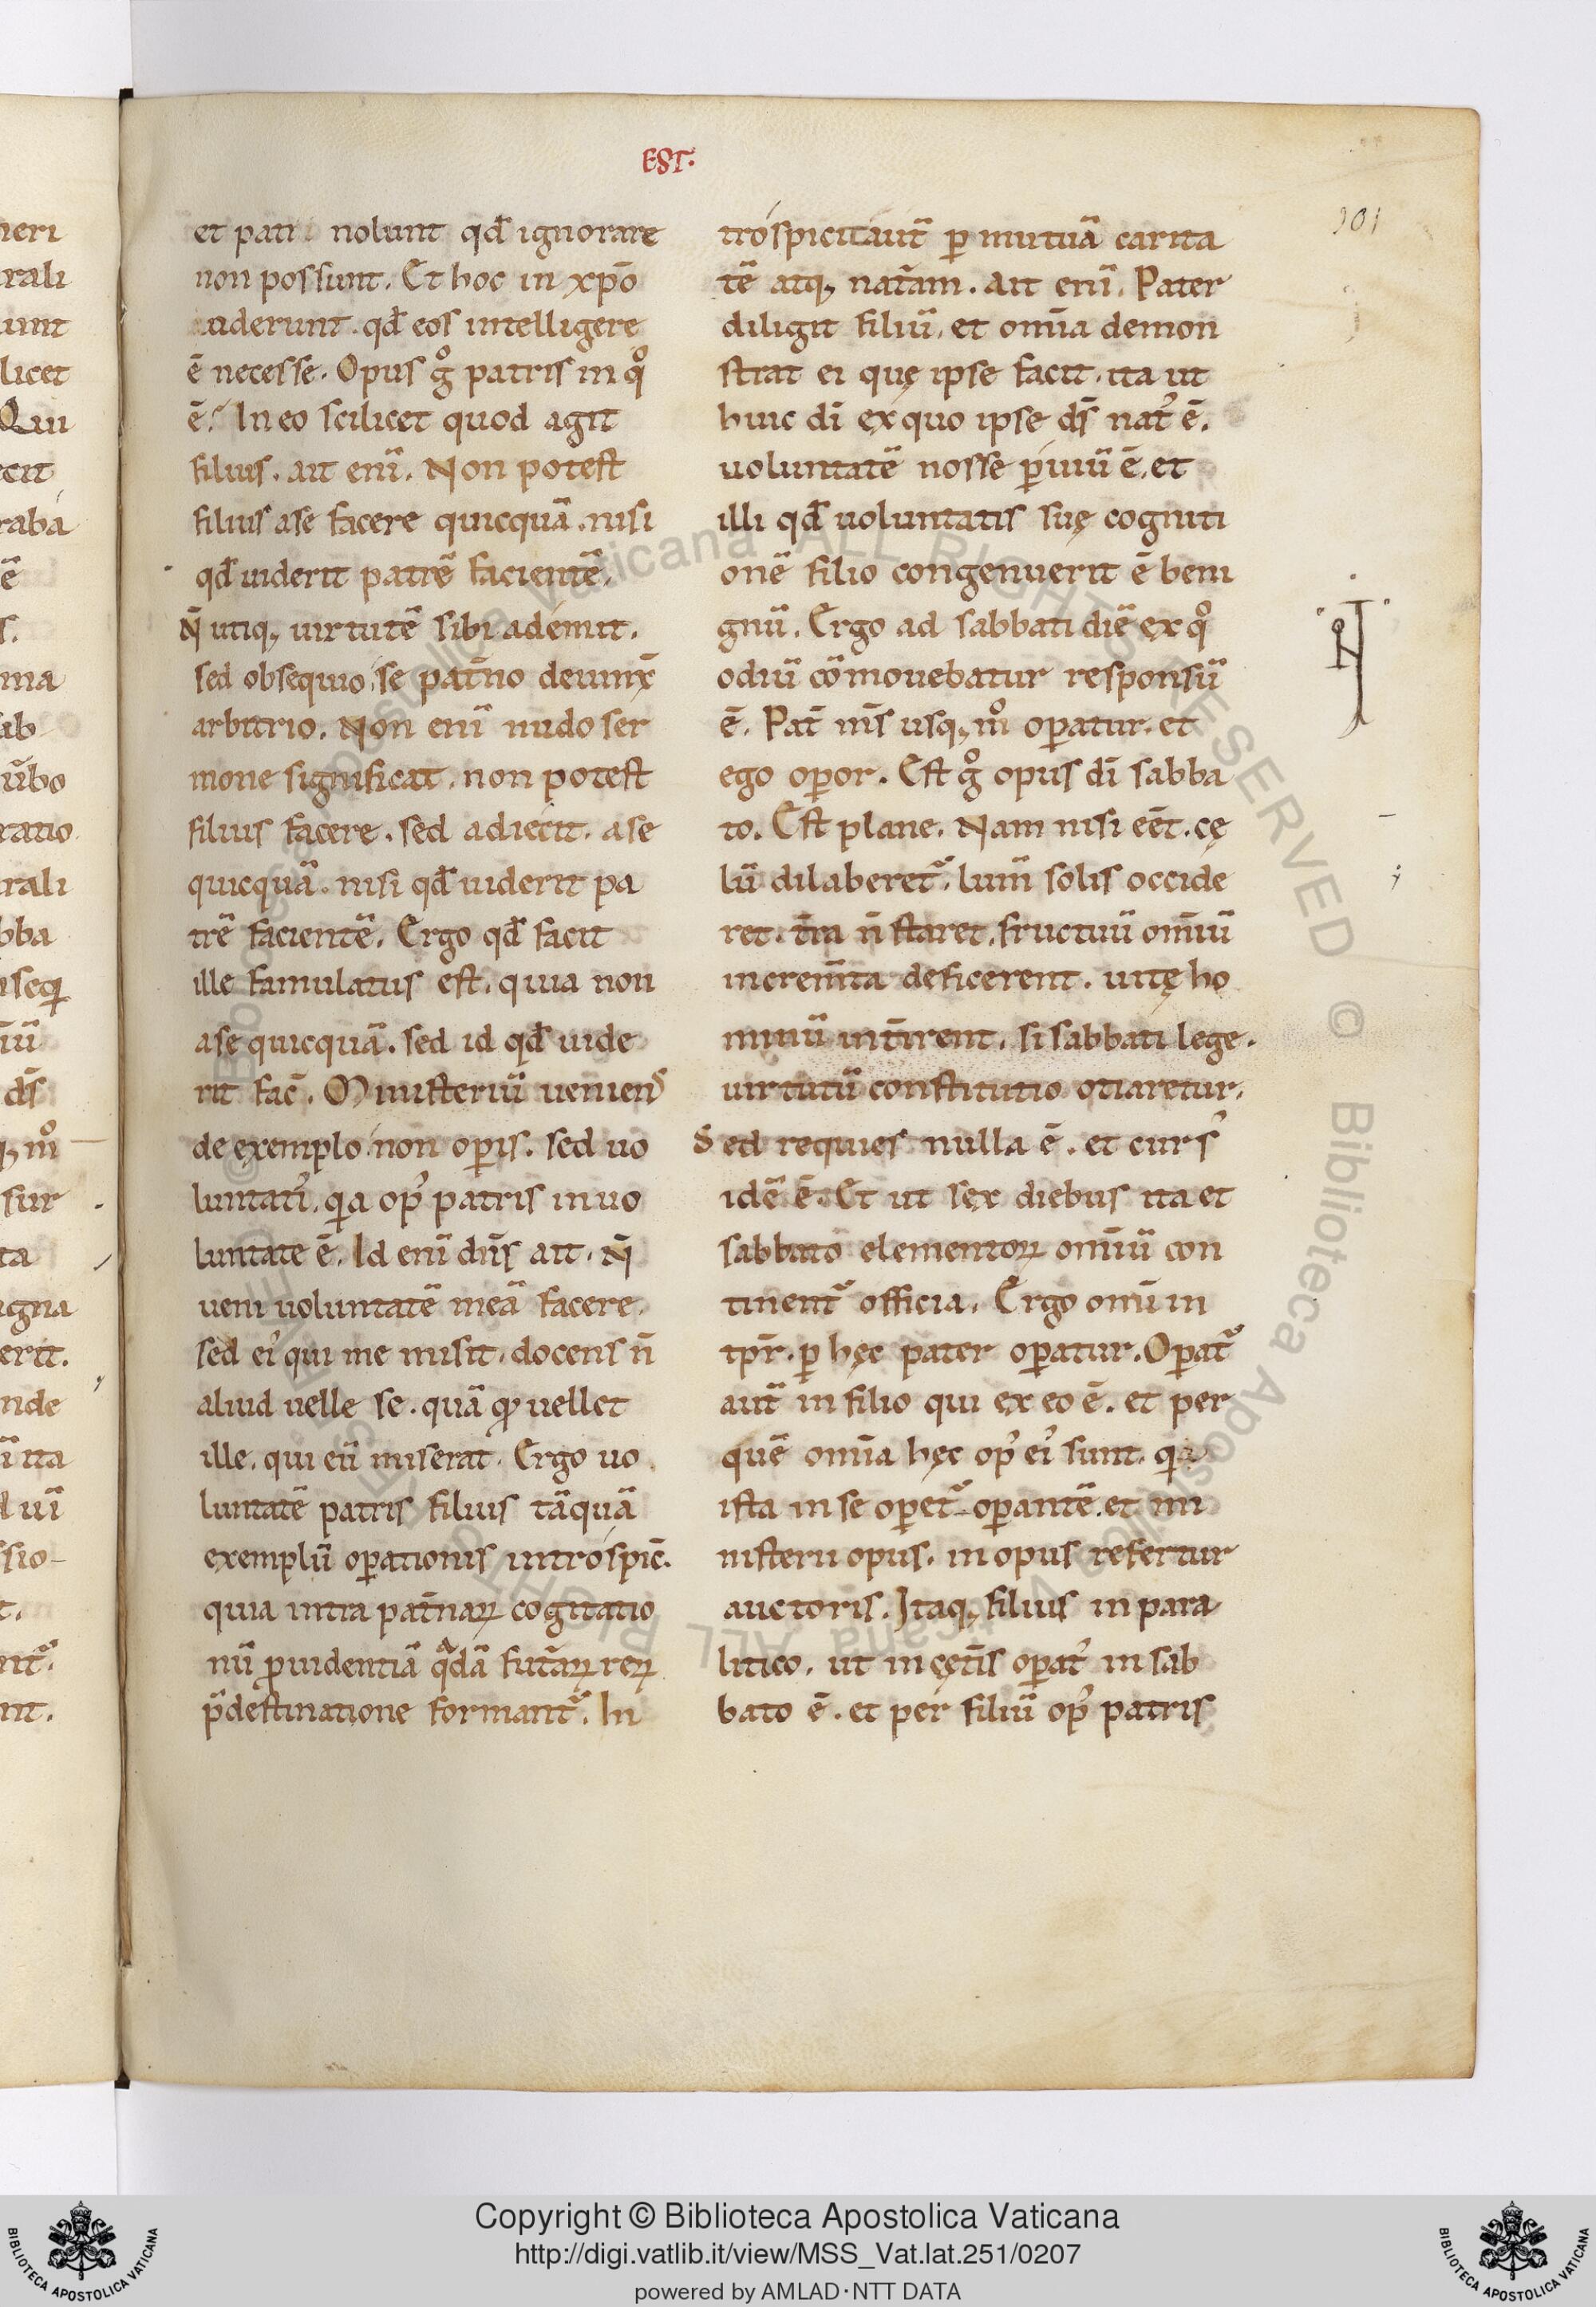 EST.
101
et pati nolunt qđ ignorare
non possunt. Et hoc in xp̄o
uiderunt. qđ eos intelligere
ē necesse. Opus gͦ patris in qͦ
ē? In eo scilicet quod agit
filius. ait enī. Non potest
filius ase facere quicquā. nisi
qđ uiderit patrē facientē.
N̄ utiq; uirtutē sibi ademit.
sed obsequio se pat̄no deuinx̄
arbitrio. Non enī nudo ser
mone significat. non potest
filius facere. sed adiecit. ase
quicquā. nisi qđ uiderit pa
trē facientē. Ergo qđ facit
ille famulatus est. quia non
ase quicquā. sed id qđ uide
rit fac̄. Ministeriū ueniens
de exemplo non op̄is. sed uo
luntatis̓. qa op̓ patris in uo
luntate ē. Id enī dn̄s ait. N̄
ueni uoluntatē meā facere.
sed ei̓ qui me misit. docens n̄
aliud uelle se. quā qđ uellet
ille. qui eū miserat. Ergo uo
luntatē patris filius tāquā
exemplū op̄ationis introspic̄.
quia intra pat̄naꝝ cogitatio
nū ꝓuidentiā qͣdā fut̄aꝝ reꝝ
p̄destinatione formant᷑. In
trospicit aut̄ ꝑ mutuā carita
tē atq; nat̄am. Ait enī. Pater
diligit filiū. et om̄ia demon
strat ei quę ipse facit. ita ut
huic di̅ ex quo ipse ds̄ nat̓ ē.
uoluntatē nosse ꝑuiū ē. et
illi qđ uoluntatis suę cogniti
onē filio congenuerit ē beni
gnū. Ergo ad sabbati diē ex qͦ
odiū cōmouebatur responsū
ē. Pat̄ ms̄ usq; mͦ oꝑatur. et
ego oꝑor. Est gͦ opus di̅ sabba
to. Est plane. Nam nisi eēt. cę
lū dilaberet᷑. lum̄ solis occide
ret. t̄ra n̄ staret. fructuū om̄iū
increm̄ta deficerent. uitę ho
minū int̄irent. si sabbati lege.
uirtutū constitutio otiaretur.
Sed requies nulla ē. et curs̓
idē ē. Et ut sex diebus ita et
sabbato elementoꝝ om̄iū con
tinent᷑ officia. Ergo om̄i in
tp̄r. ꝑ hęc pater oꝑatur. Oꝑat᷑
aut̄ in filio qui ex eo ē. et per
quē om̄ia hęc op̓ ei̓ sunt. qa
ista in se oꝑet᷑ oꝑantē. et mi
nisterii opus. in opus refertur
auctoris. Itaq; filius in para
litico. ut in cęt̄is oꝑat̓ in sab
bato ē. et per filiū op̓ patris
Copyright © Biblioteca Apostolica Vaticana
http://digi.vatlib.it/view/MSS_Vat.lat.251/0207
powered by AMLAD·NTT DATA
BIBLIOTECA APOSTOLICA VATICANA
BIBLIOTECA APOSTOLICA VATICANA